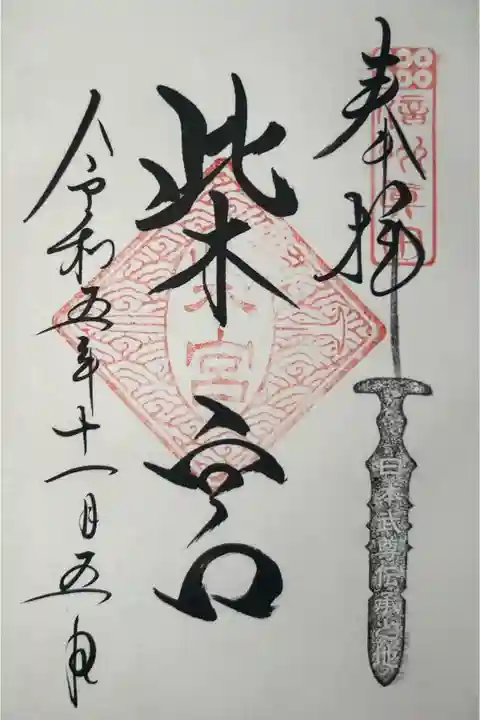 奉拝
日本武尊伝承之地
柴宮
令和五年十一月五日